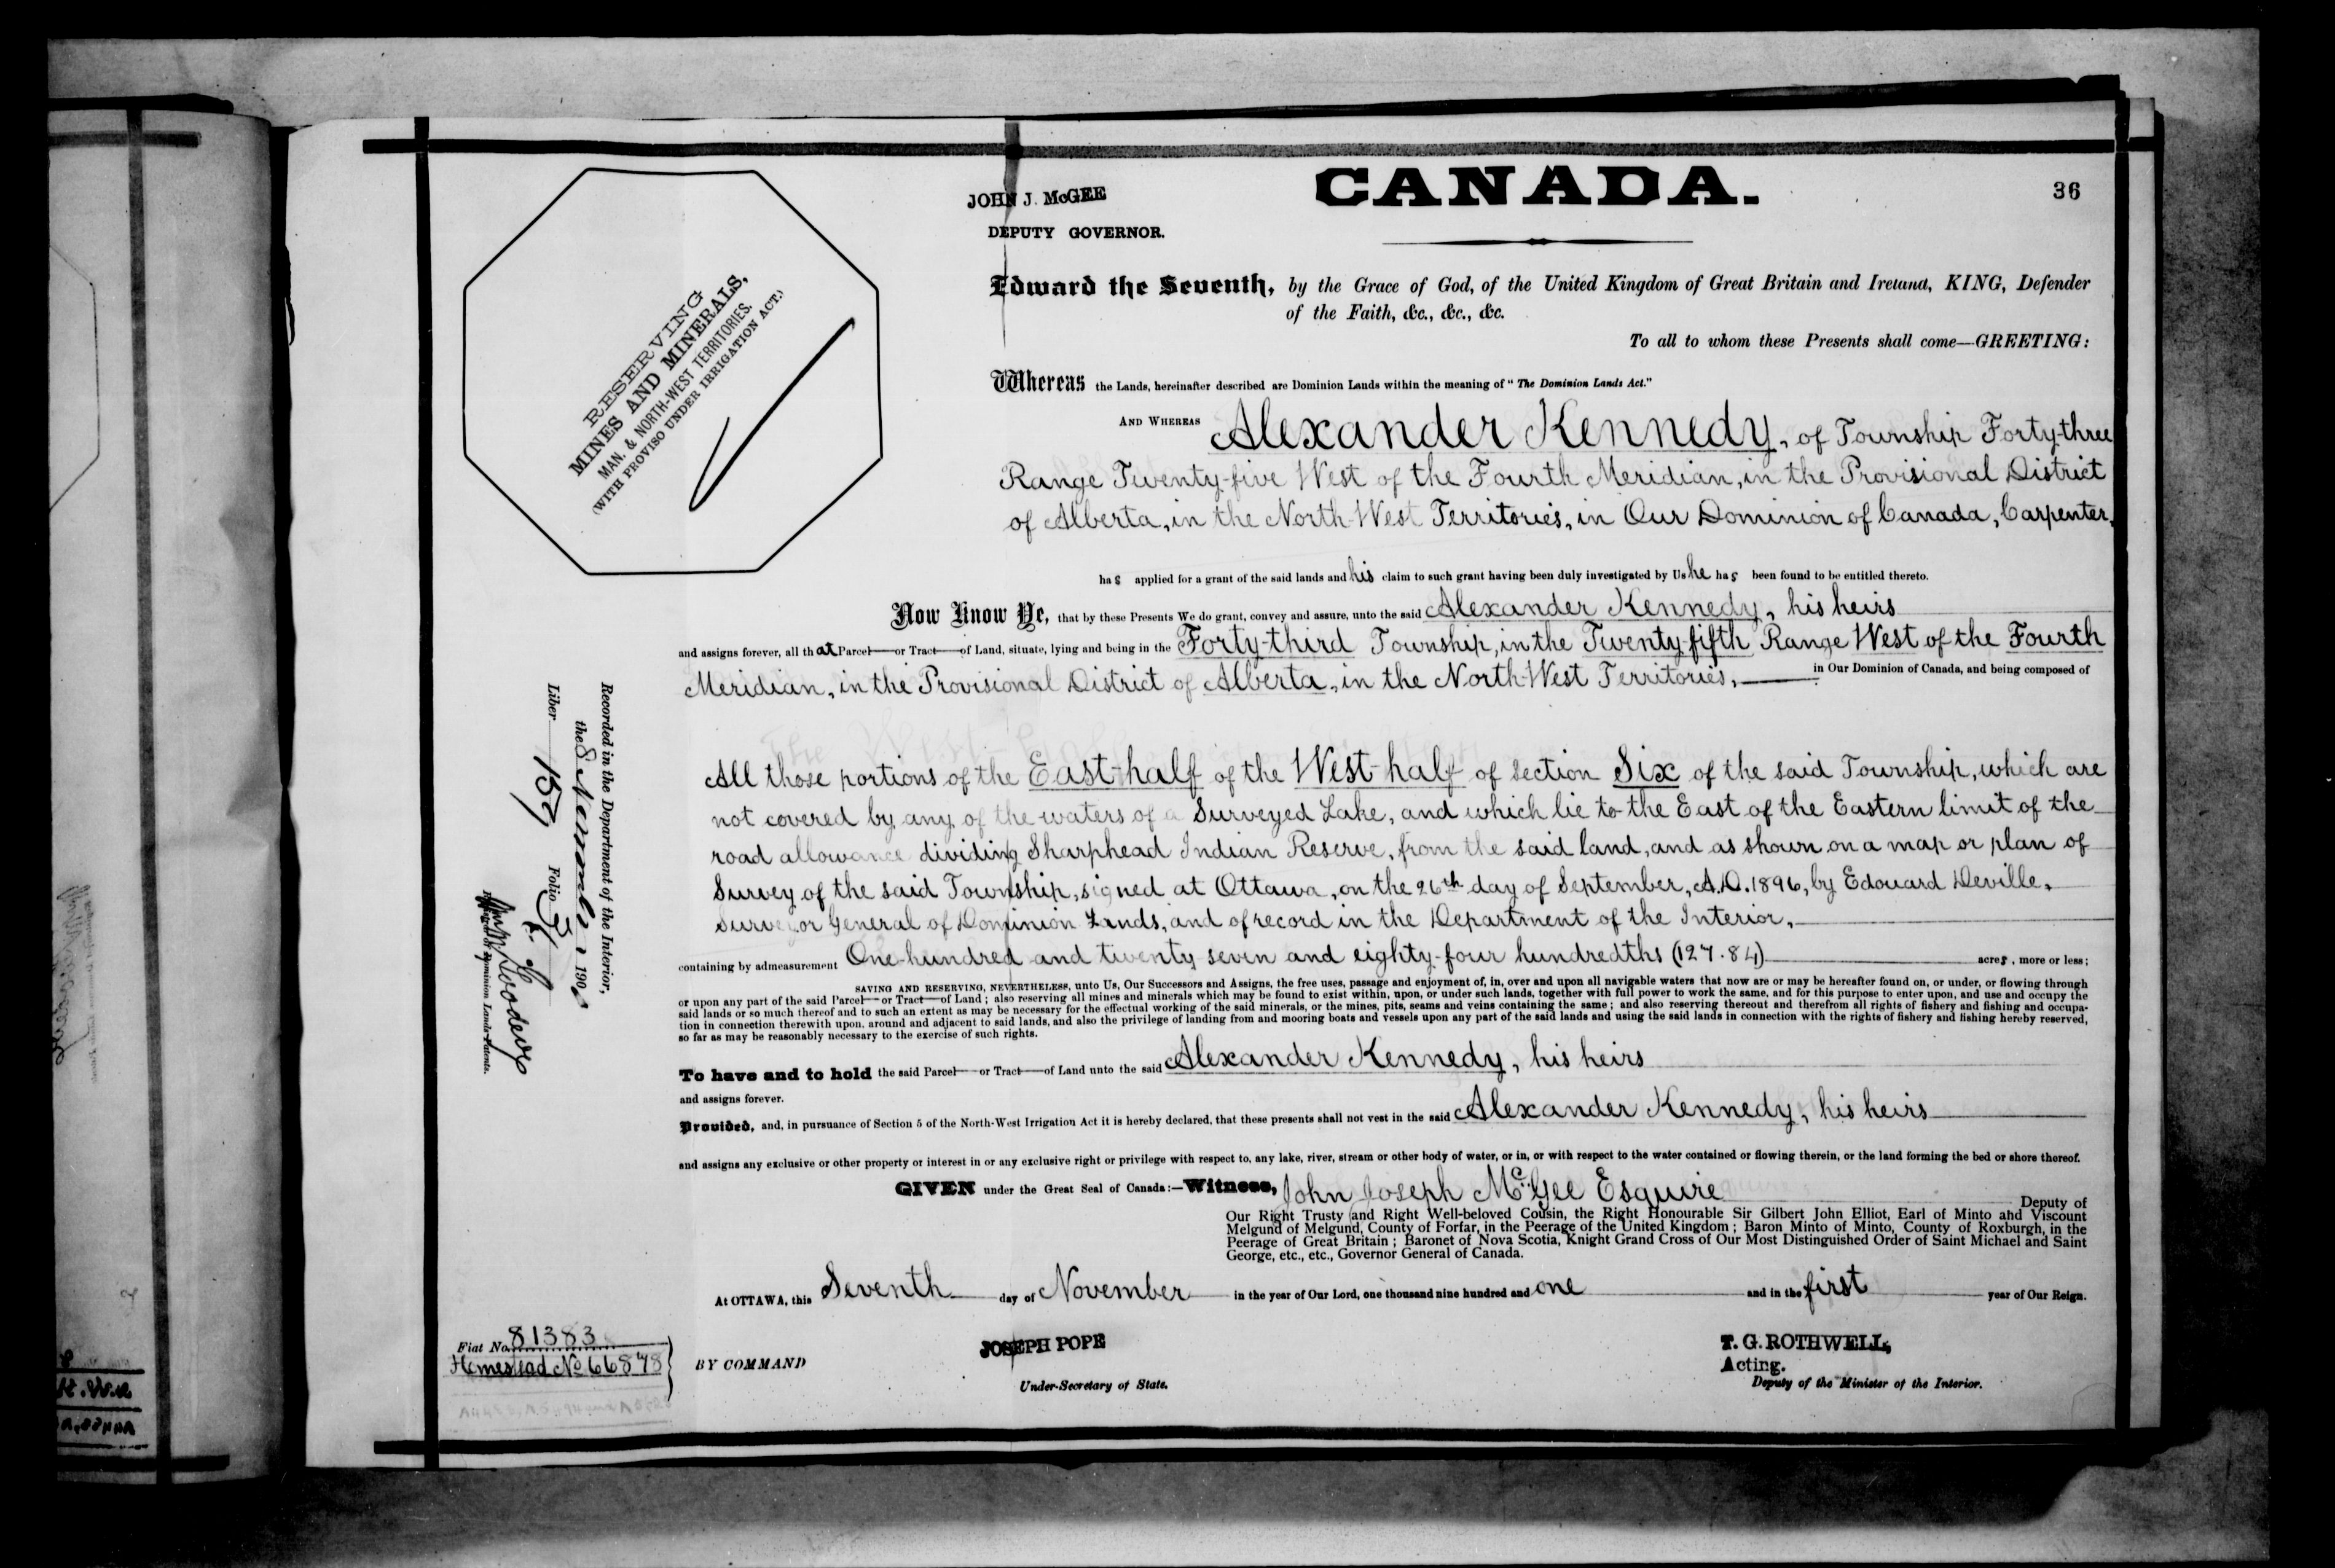 CANADA.
36
JOHN J. McGEE
DEPUTY GOVERNOR.
RESERVING
MINES AND MINERALS,
MAN. & NORTH-WEST TERRITORIES.
(WITH PROVISO UNDER IRRIGATION ACT.)
Edward the Seventh, by the Grace of God, of the United Kingdom of Great Britain and Ireland, KING, Defender
of the Faith, &c., &c., &c.
To all to whom these Presents shall come—GREETING:
Whereas the Lands, hereinafter described are Dominion Lands within the meaning of "The Dominion Lands Act."
AND WHEREAS Alexander Kennedy, of Township Forty-three
Range Twenty-five West of the Fourth Meridian, in the Provisional District
of Alberta, in the North-West Territories, in Our Dominion of Canada, Carpenter,
has applied for a grant of the said lands and his claim to such grant having been duly investigated by Us he has been found to be entitled thereto.
Now Know Ye, that by these Presents We do grant, convey and assure, unto the said Alexander Kennedy, his heirs
and assigns forever, all that Parcel or Tract of Land, situate, lying and being in the Forty-third Township, in the Twenty-fifth Range West of the Fourth
Meridian, in the Provisional District of Alberta, in the North-West Territories, in Our Dominion of Canada, and being composed of
All those portions of the East-half of the West-half of section Six of the said Township, which are
not covered by any of the waters of a Surveyed Lake, and which lie to the East of the Eastern limit of the
road allowance dividing Sharphead Indian Reserve, from the said land, and as shown on a map or plan of
Survey of the said Township, signed at Ottawa, on the 26th day of September, A.D. 1896, by Edouard Deville,
Surveyor General of Dominion Lands, and of record in the Department of the Interior,
containing by admeasurement One hundred and twenty seven and eighty-four hundredths (127.84) acres, more or less;
SAVING AND RESERVING, NEVERTHELESS, unto Us, Our Successors and Assigns, the free uses, passage and enjoyment of, in, over and upon all navigable waters that now are or may be hereafter found on, or under, or flowing through
or upon any part of the said Parcel or Tract of Land; also reserving all mines and minerals which may be found to exist within, upon, or under such lands, together with full power to work the same, and for this purpose to enter upon, and use and occupy the
said lands or so much thereof and to such an extent as may be necessary for the effectual working of the said minerals, or the mines, pits, seams and veins containing the same; and also reserving thereout and therefrom all rights of fishery and fishing and occupa-
tion in connection therewith upon, around and adjacent to said lands, and also the privilege of landing from and mooring boats and vessels upon any part of the said lands and using the said lands in connection with the rights of fishery and fishing hereby reserved,
so far as may be reasonably necessary to the exercise of such rights.
To have and to hold the said Parcel or Tract of Land unto the said Alexander Kennedy, his heirs
and assigns forever.
Provided, and, in pursuance of Section 5 of the North-West Irrigation Act it is hereby declared, that these presents shall not vest in the said Alexander Kennedy, his heirs
and assigns any exclusive or other property or interest in or any exclusive right or privilege with respect to, any lake, river, stream or other body of water, or in, or with respect to the water contained or flowing therein, or the land forming the bed or shore thereof.
GIVEN under the Great Seal of Canada:—Witness, John Joseph McGee Esquire Deputy of
Our Right Trusty and Right Well-beloved Cousin, the Right Honourable Sir Gilbert John Elliot, Earl of Minto and Viscount
Melgund of Melgund, County of Forfar, in the Peerage of the United Kingdom; Baron Minto of Minto, County of Roxburgh, in the
Peerage of Great Britain; Baronet of Nova Scotia, Knight Grand Cross of Our Most Distinguished Order of Saint Michael and Saint
George, etc., etc., Governor General of Canada.
At OTTAWA, this Seventh day of November in the year of Our Lord, one thousand nine hundred and one and in the first year of Our Reign.
Fiat No. 81383
Homestead No 66878
BY COMMAND
JOSEPH POPE
Under-Secretary of State.
T. G. ROTHWELL,
Acting.
Deputy of the Minister of the Interior.
Recorded in the Department of the Interior,
the 8 November 190
Liber 157 Folio
Registrar of Dominion Lands Patents.